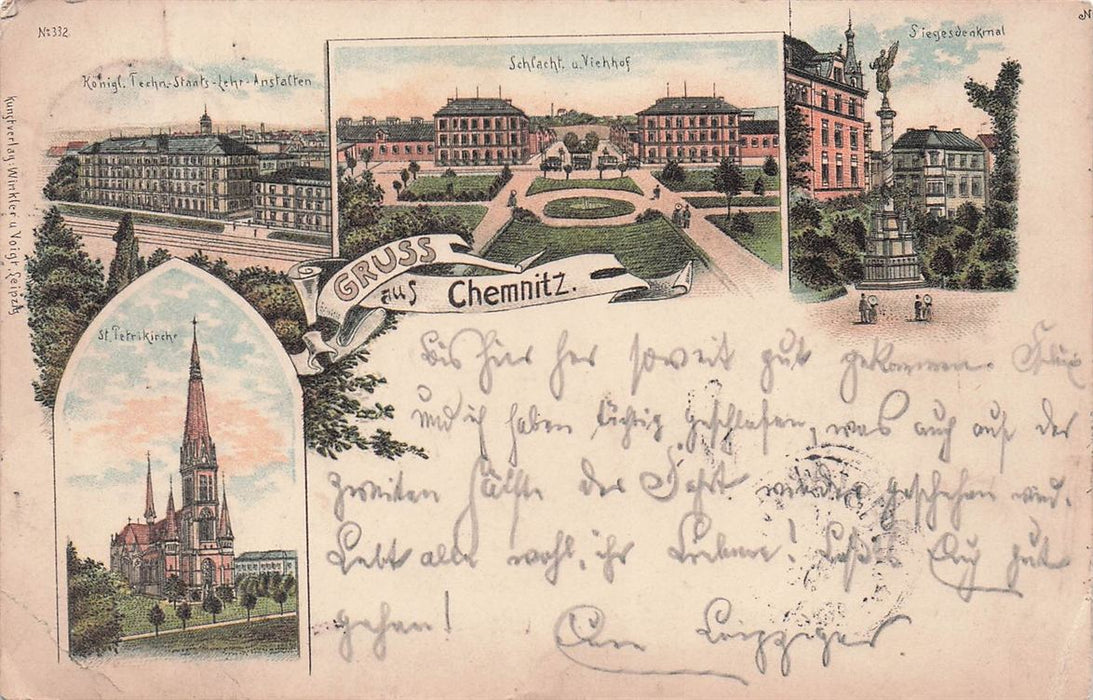 No 332.
Königl. Techn.-Staats-Lehr-Anstalten
Schlacht. u. Viehhof
Siegesdenkmal
N
Kunstverlag: Winkler u. Voigt, Leipzig
GRUSS
aus Chemnitz.
St. Petrikirche
Bis hier her soweit gut gekommen.
und ich haben tüchtig geschlafen, was auch auf der
zweiten Hälfte der Fahrt wieder geschehen wird.
Lebt alle wohl, ihr Lieben! Laßt's Euch gut
gehen!
Leipziger